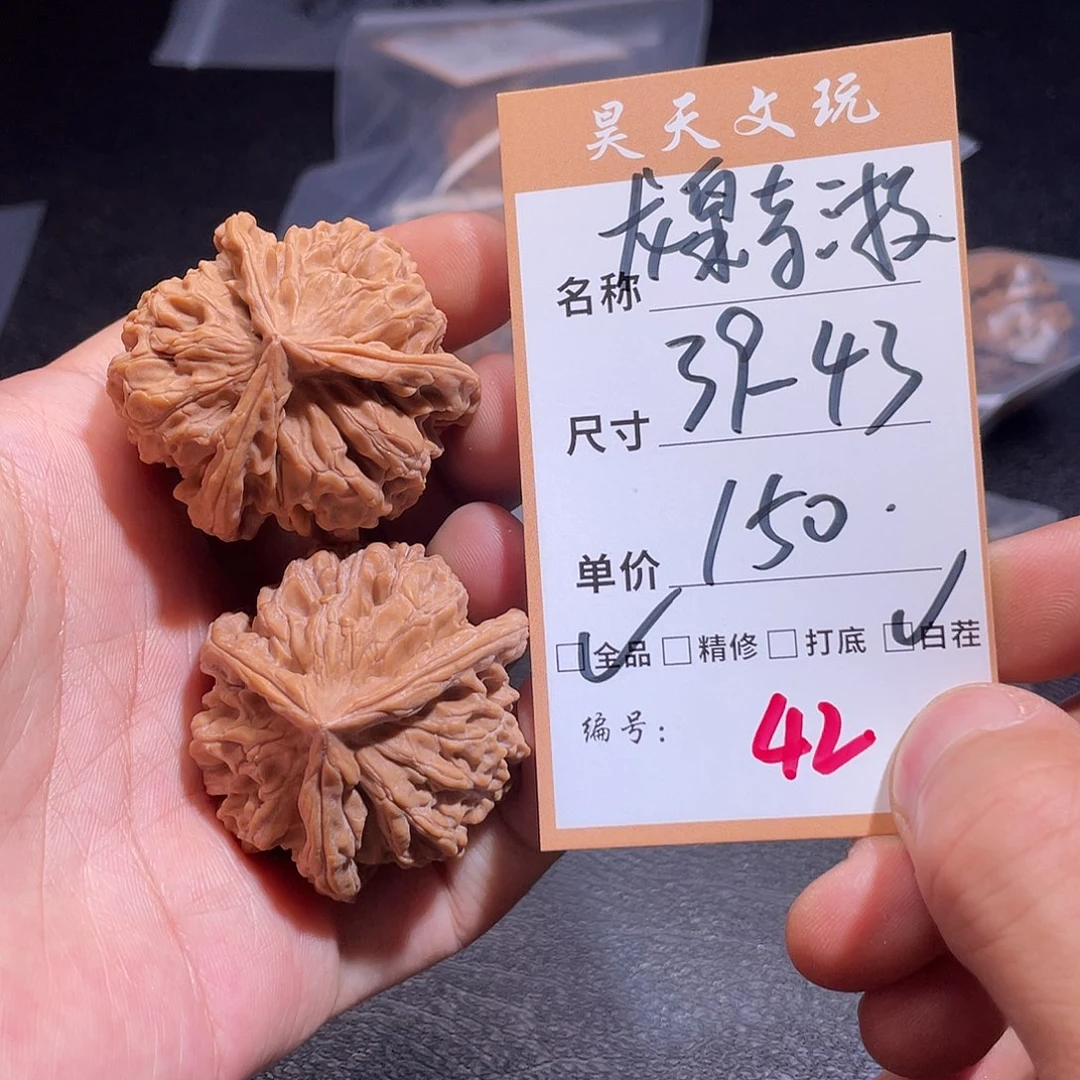 昊天文玩
名称 龙
尺寸 39-43
单价 150.
全品 精修 打底 白茬
编号: 42